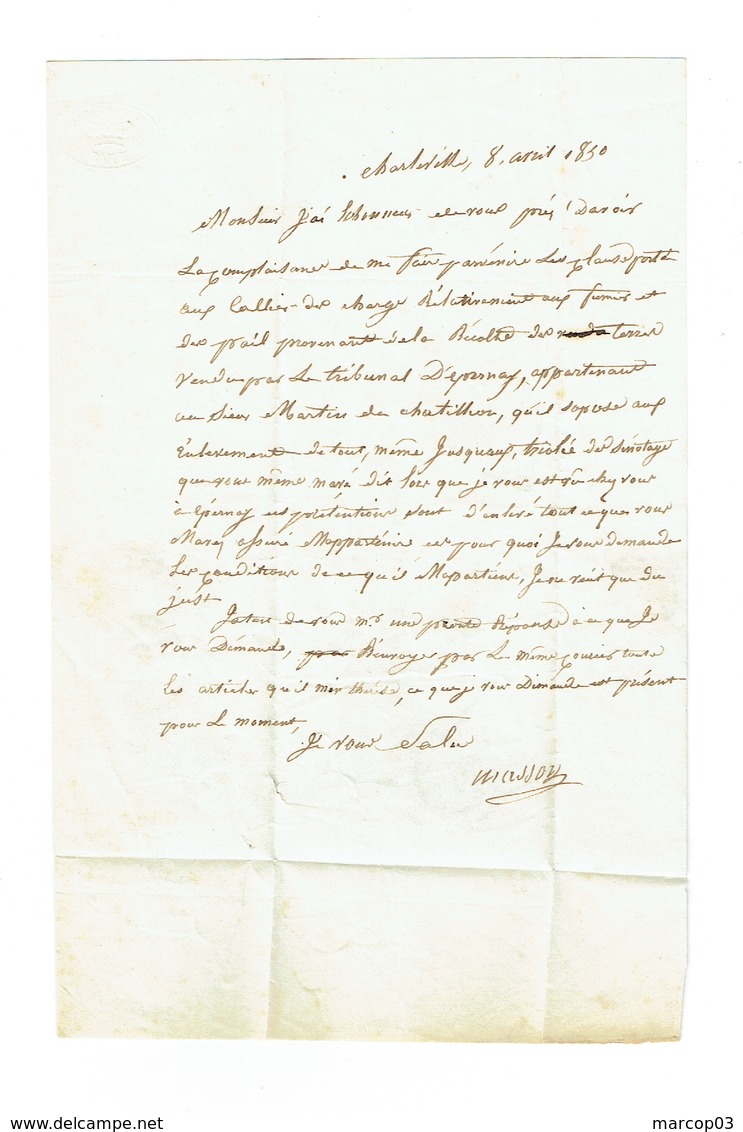 Charleville, 8, avril 1850
Monsieur J'ai Lhonneur de vous priés Davoir
La Complaisance de me faire parvénire Les Clause porté
aux Cailler des charge Rélativement aux fumier et
des pail provenant de la Récolté des terres
Vendu par Le tribunal D'épernay, appartenant
au sieur Martin de Chatillion, qu'il sopose aux
Enlevement de tout, même Jusqueaux
que vous même mavé dit lors que je vous est vu chez vous
à Epernay ses prétentions sont d'enlevé tout ce que vous
Mavez assuré Mapparténire ces pour quoi Je vous demande
Les Conditions de ce qu'il Mapartient, Je ne veut que du
just
Jatent de vous mr une Réponse à ce que Je
vous Démande, Renvoyer par Le même Courier toute
Les articles qu'il, ce que je vous Démande est présent
pour Le moment,
Je vous Salu
Masson
marcop03